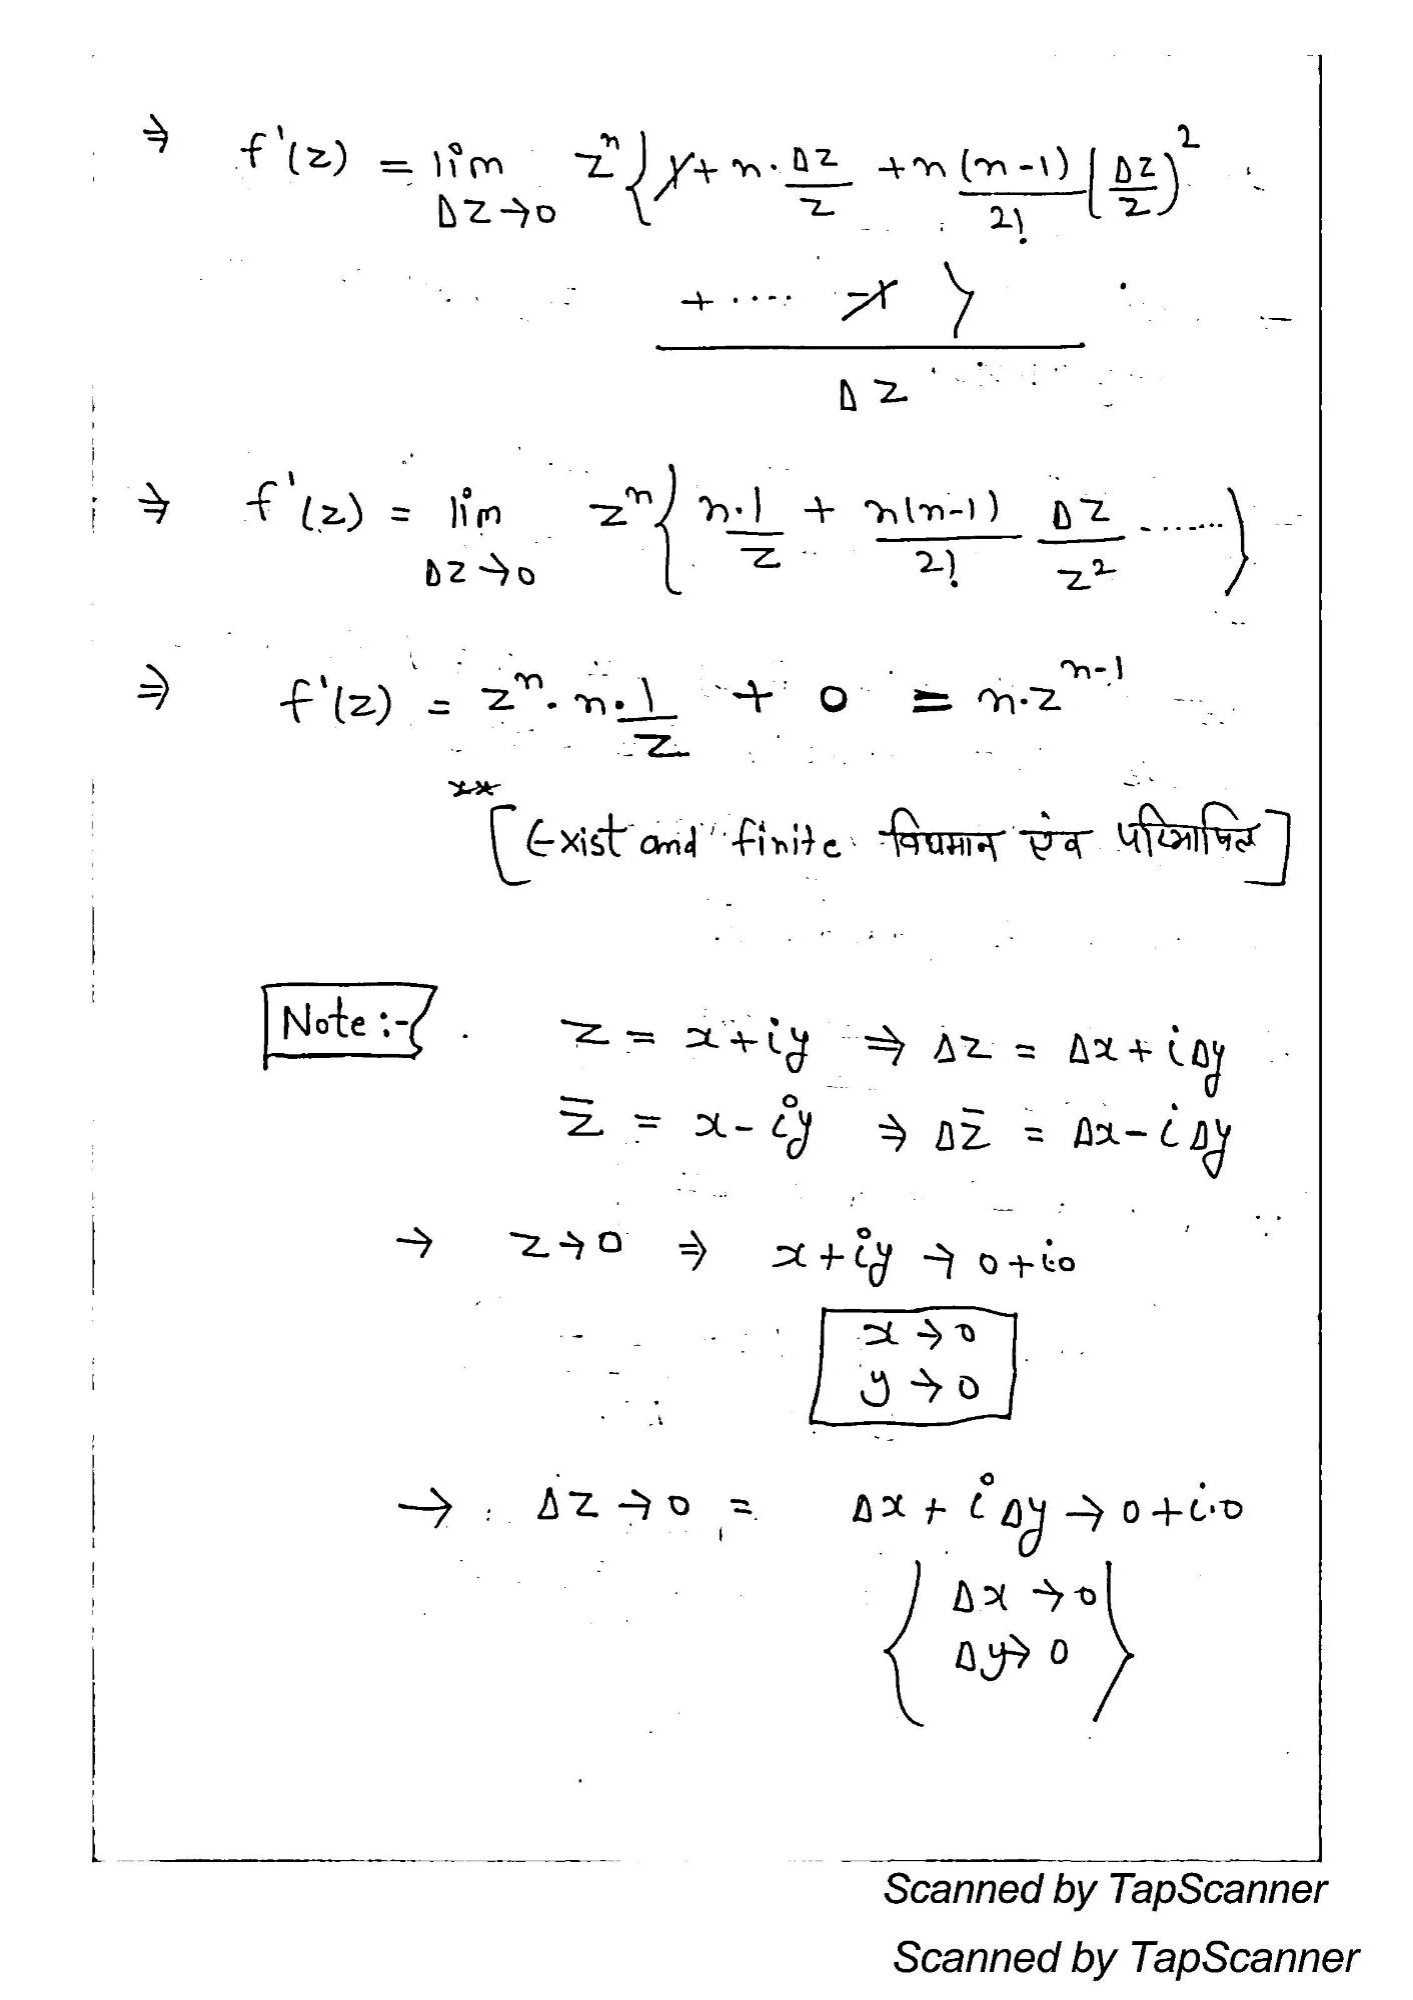 ⇒ f'(z) = lim z^n { 1 + n. Δz/z + n(n-1)/2! (Δz/z)^2
Δz→0
+ .... -1 }
Δz
⇒ f'(z) = lim z^n { n.1/z + n(n-1)/2! Δz/z^2 ....... }
Δz→0
⇒ f'(z) = z^n . n. 1/z + 0 = n.z^(n-1)
**
[Exist and finite विघमान एंव परिभाषित]
Note:- z = x+iy ⇒ Δz = Δx + iΔy
z̄ = x-iy ⇒ Δz̄ = Δx-iΔy
→ z→0 ⇒ x+iy → 0+i.0
x→0
y→0
→ Δz→0 = Δx + iΔy → 0+i.0
{ Δx→0
Δy→0 }
Scanned by TapScanner
Scanned by TapScanner